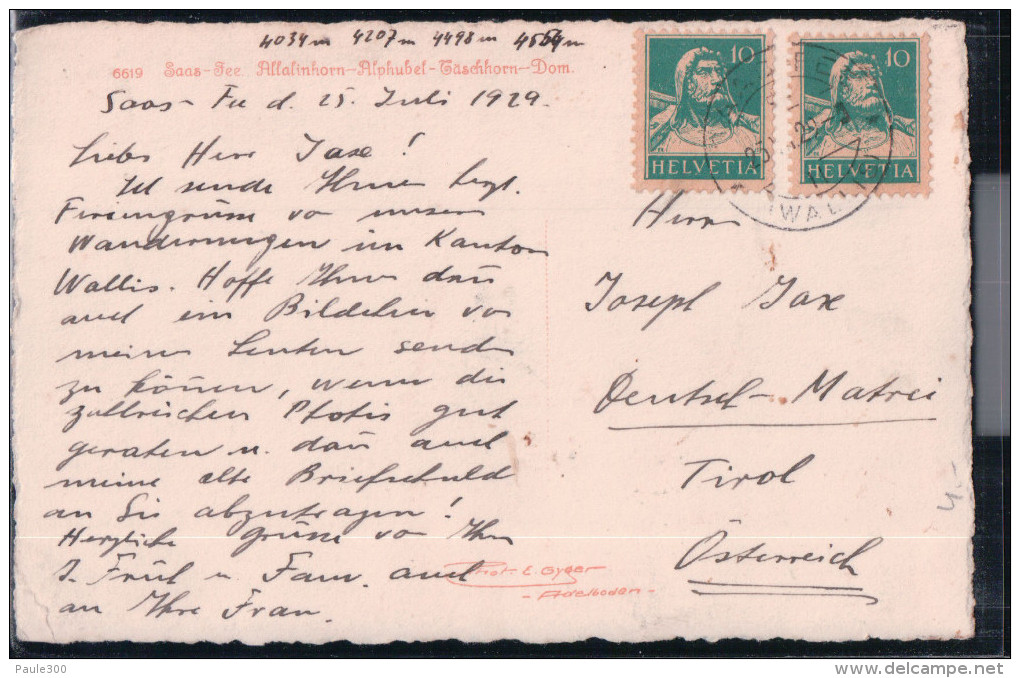 4034 m 4207 m 4498 m 4554 m
6619 Saas-Fee. Allalinhorn-Alphubel-Täschhorn-Dom.
Saas-Fee d. 25. Juli 1929.
Liebe Herr Jaxe!
Ich sende Ihnen
Feriengrüsse von unseren
Wanderungen im Kanton
Wallis. Hoffe Ihnen dann
auch ein Bildchen von
meinen Leuten senden
zu können, wenn die
zahlreichen Photis gut
geraten u. dann auch
meine alte Briefschuld
an Sie abzutragen!
Herzliche Grüsse von Ihrem
J. Früh u. Fam. auch
an Ihre Frau.
10
HELVETIA
10
HELVETIA
Herrn
Joseph Jaxe
Deutsch-Matrei
Tirol
Österreich
Phot. E. Gyger
- Adelboden -
4.-
Paule300
delcampe.net